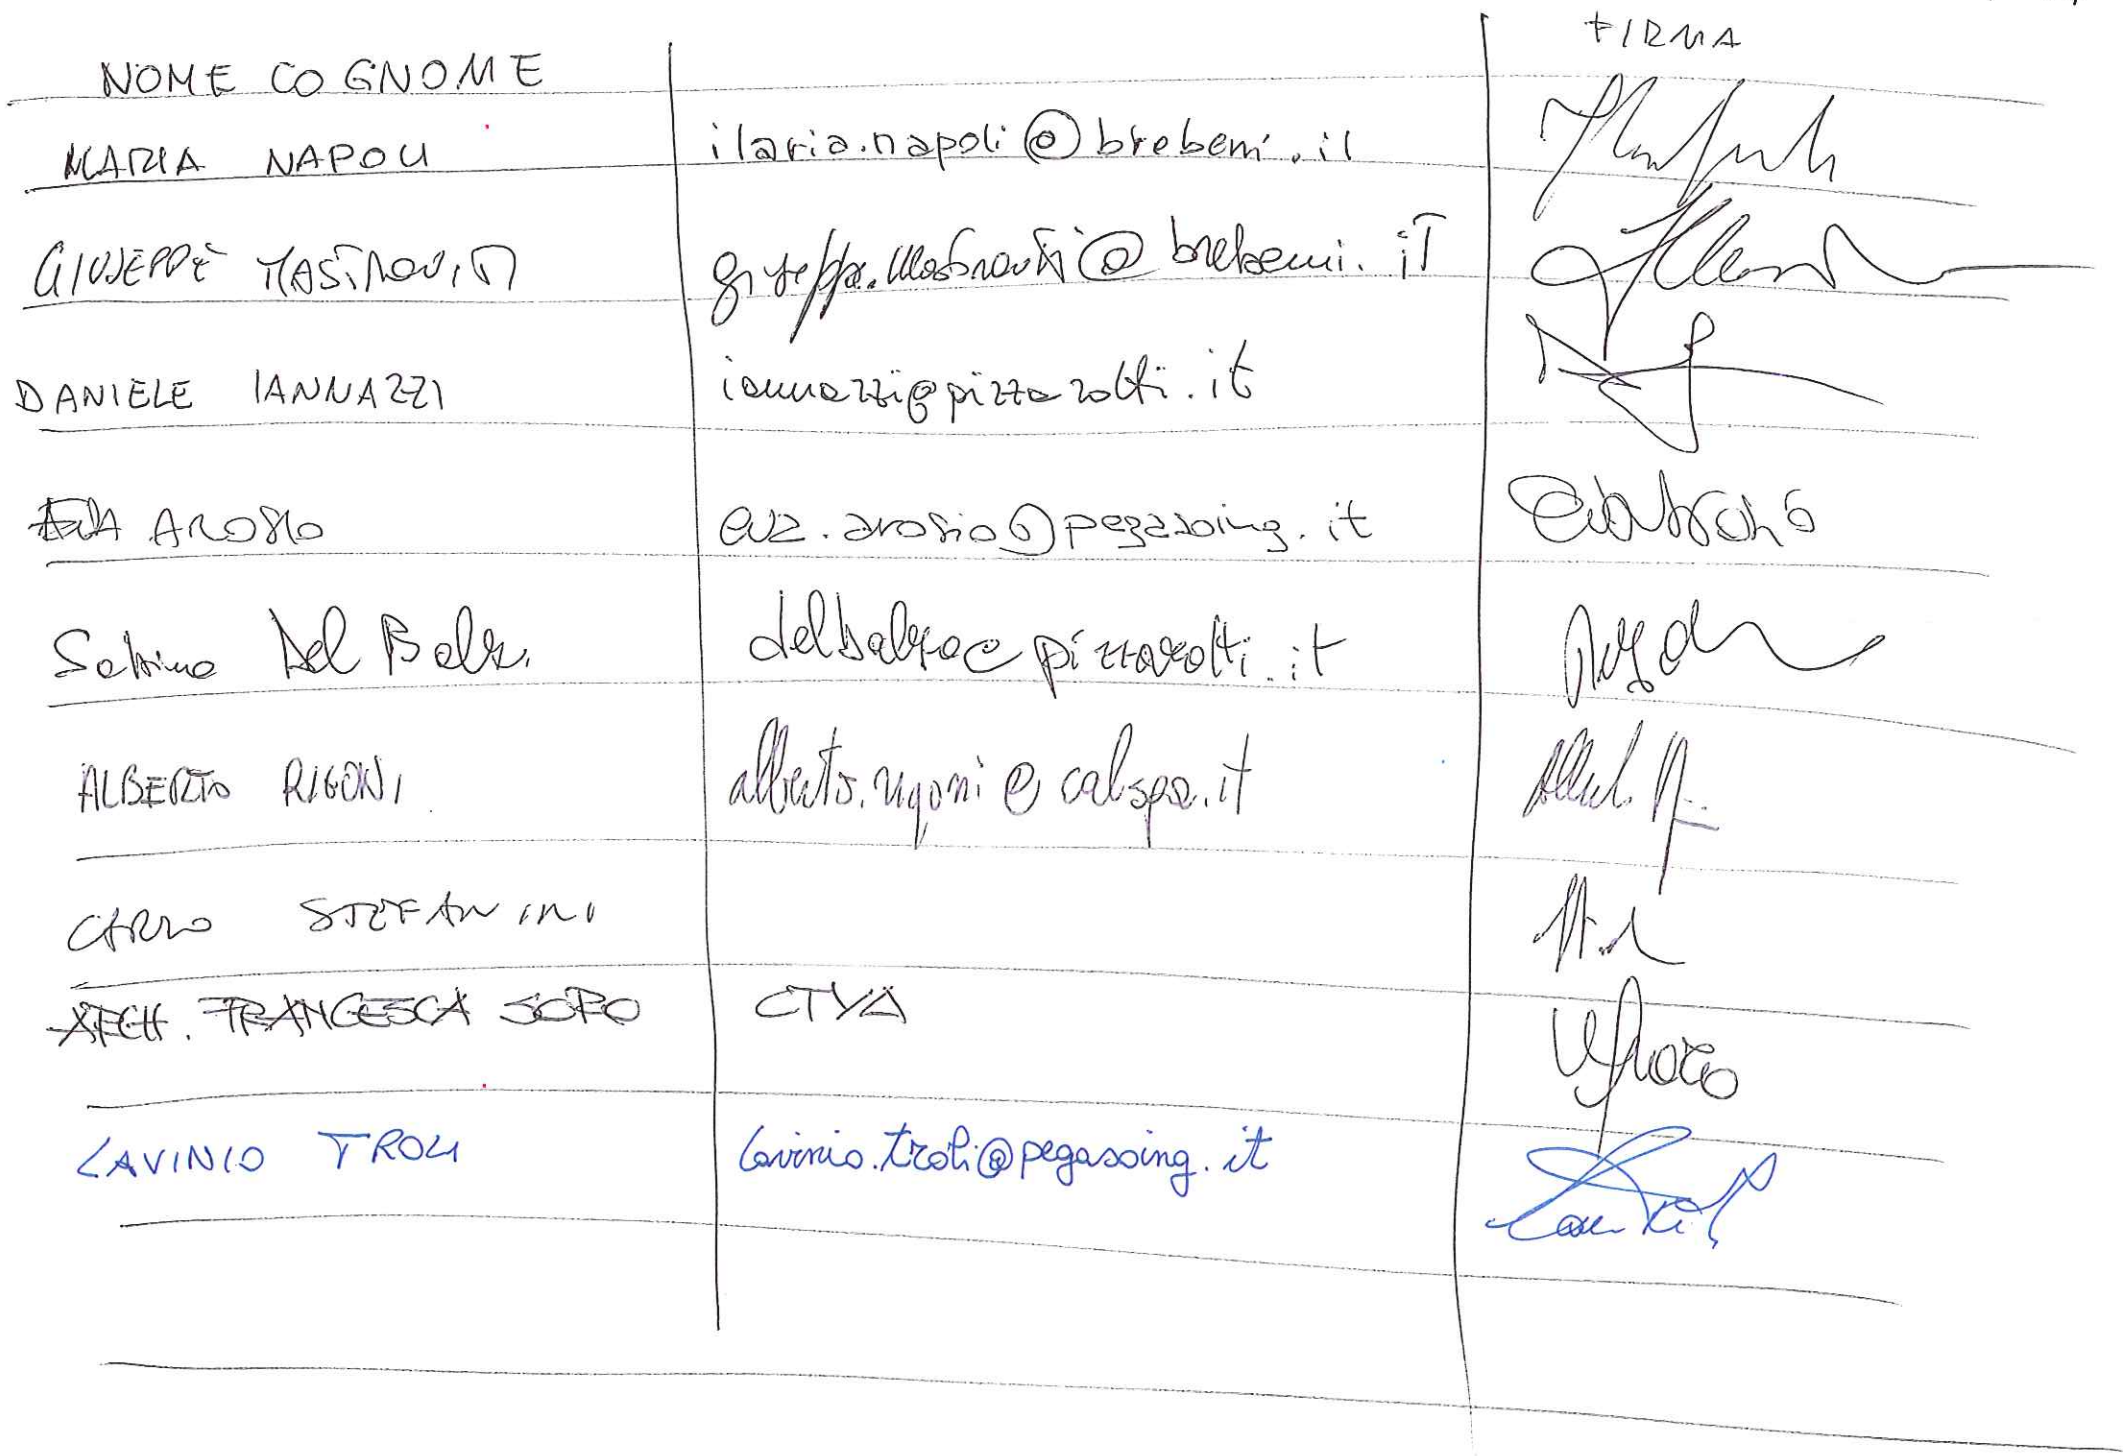 FIRMA
NOME COGNOME
MARIA NAPOLI ilaria.napoli@brebemi.it
GIUSEPPE MASTROVITI giuseppe.mastroviti@brebemi.it
DANIELE IANNAZZI iannazzi@pizzarotti.it
EVA AROSIO eva.arosio@pegasoing.it
Del Balzo delbalzo@pizzarotti.it
ALBERTO RIGONI alberto.rigoni@calspa.it
CARLO STEFANINI
ARCH. FRANCESCA SORO CTVA
LAVINIO TROLI lavinio.troli@pegasoing.it